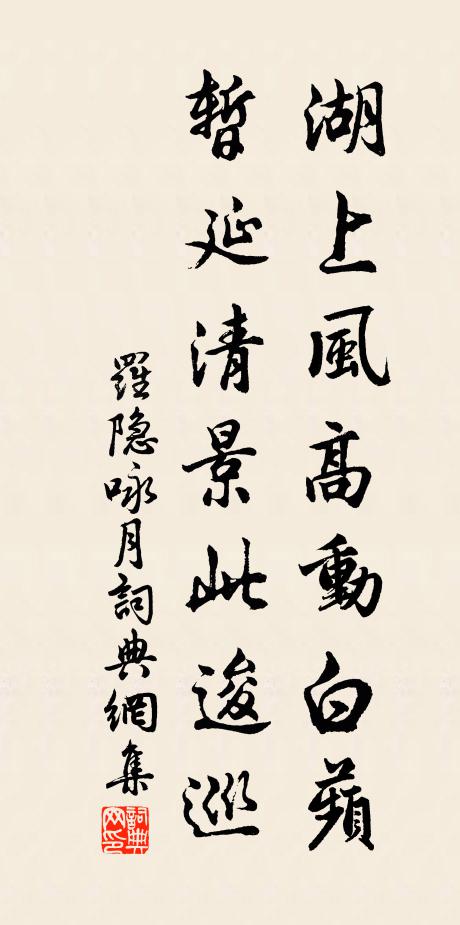 湖上風高動白蘋
暫延清景此逡巡
羅隐咏月詞典網集
詞典网印